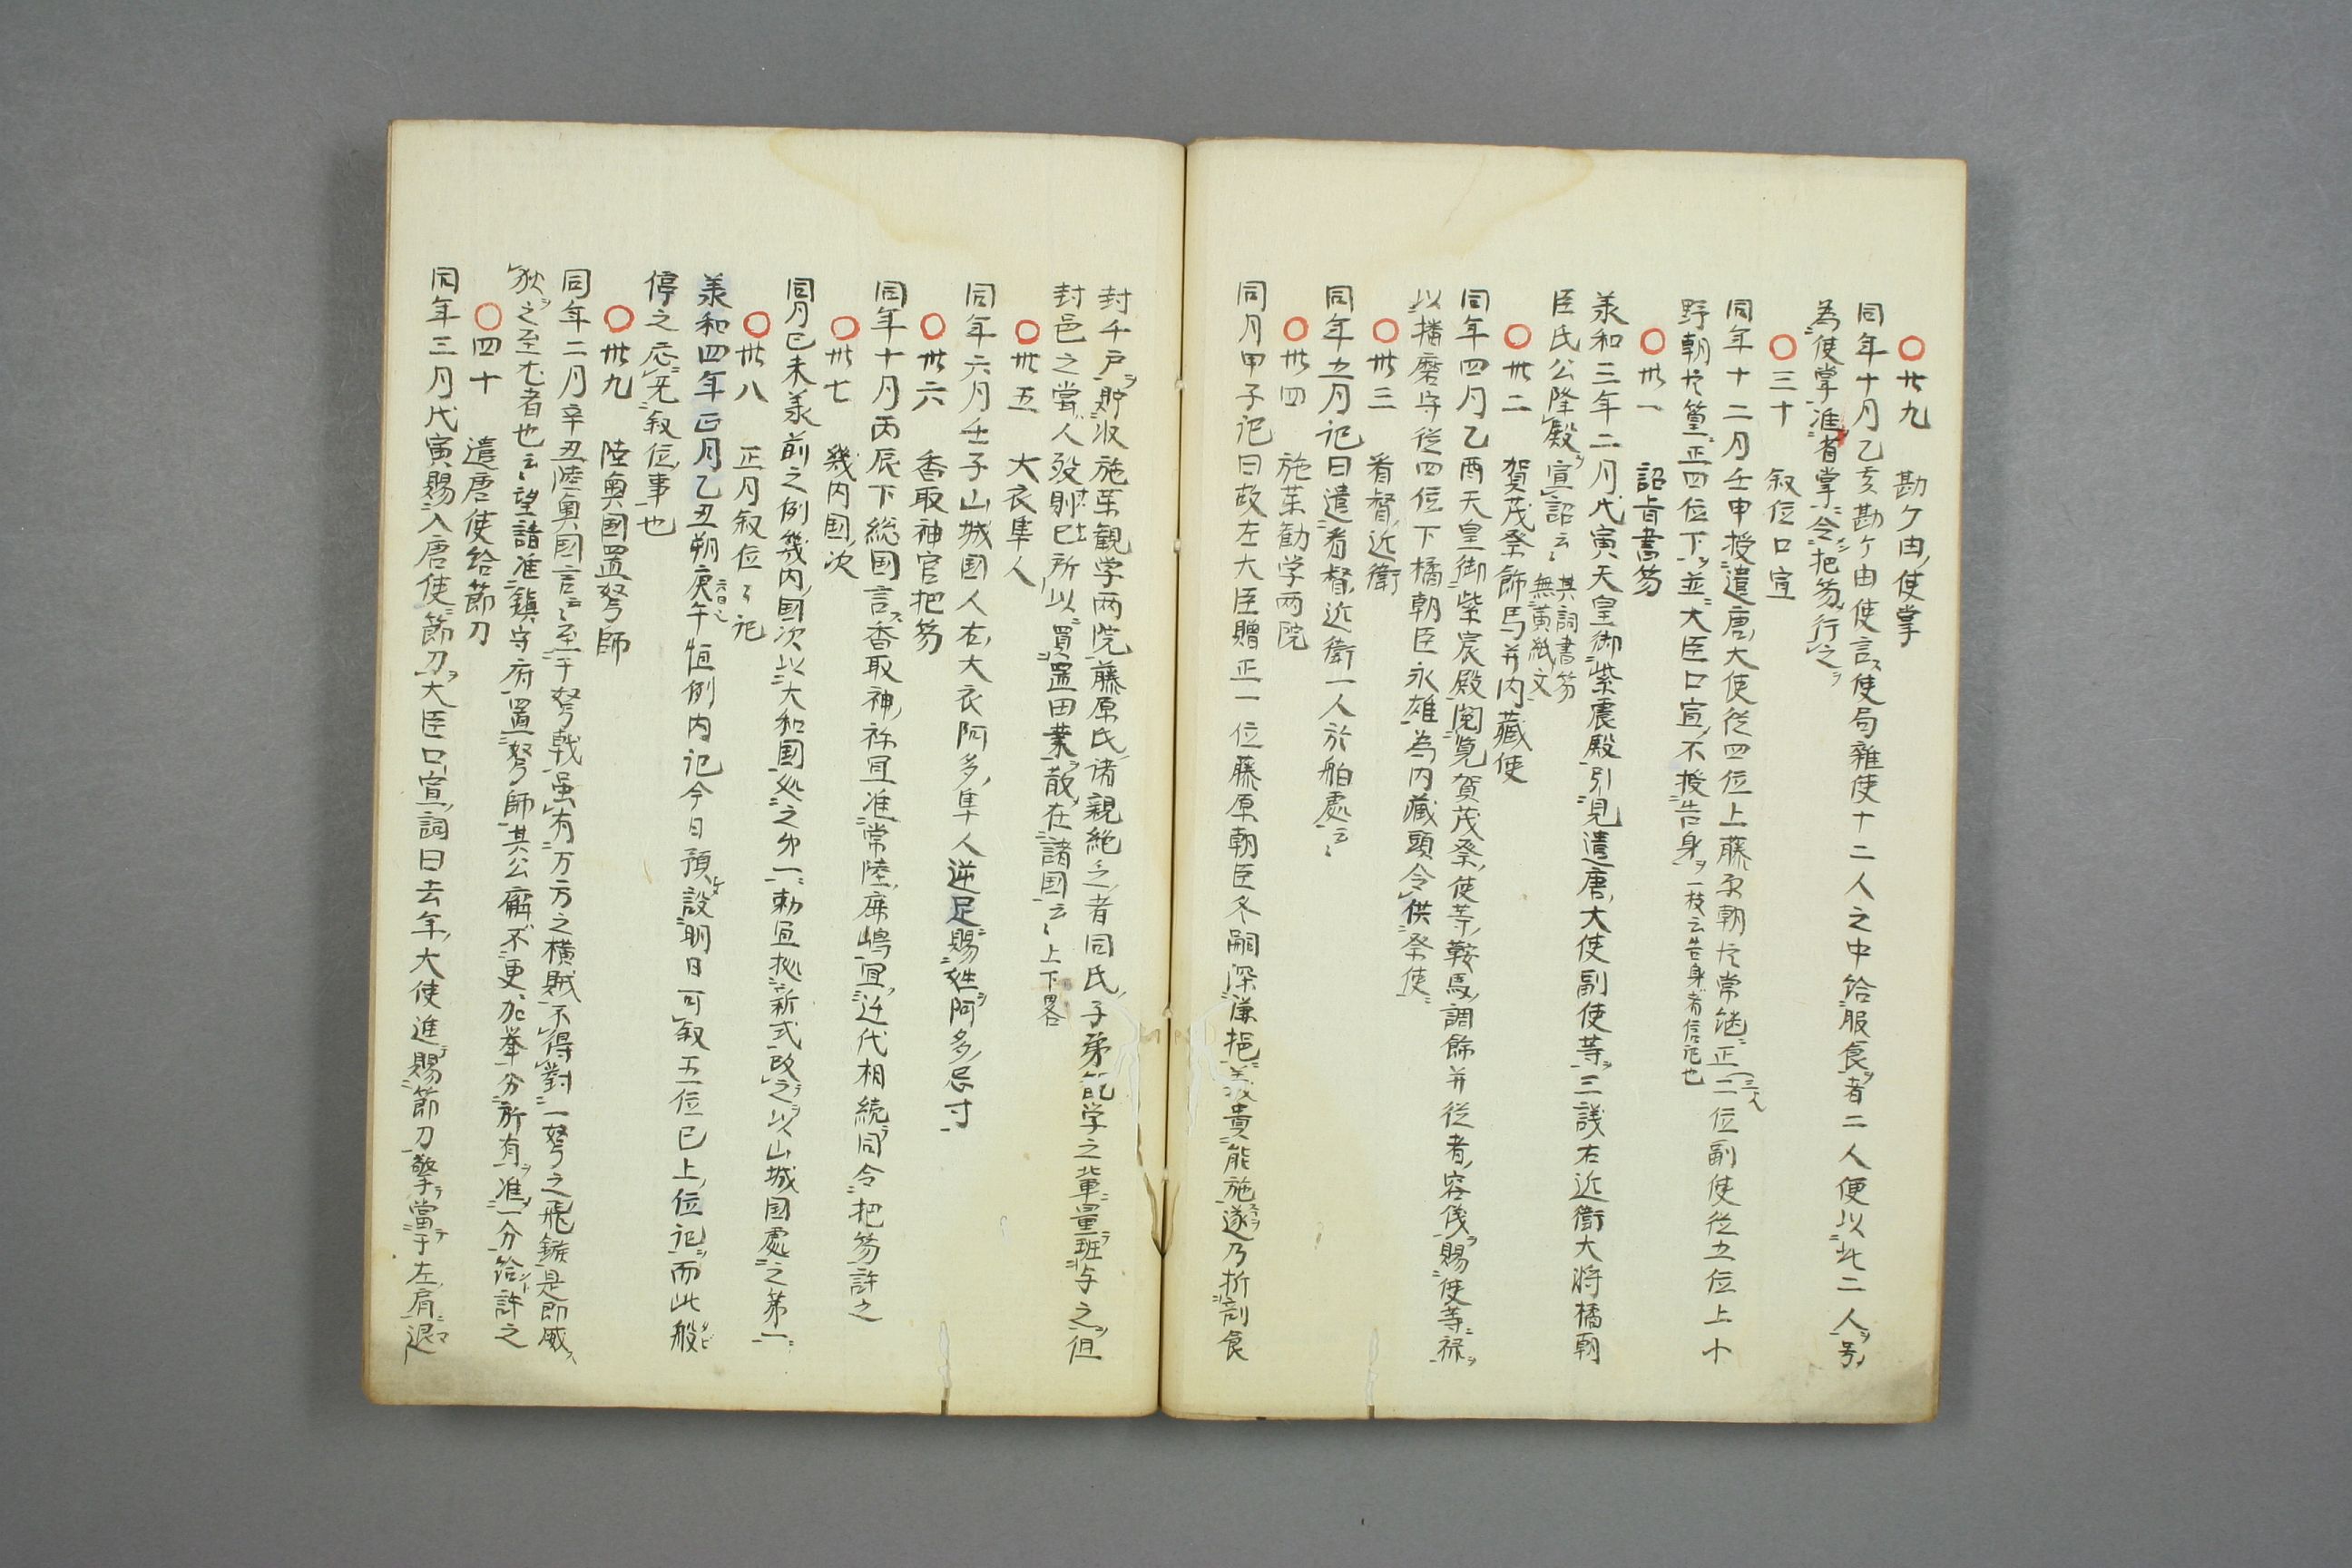 ○廿九　勘ケ由使掌
同年十月乙亥勘ケ由使言使局雜使十二人之中給服食者二人便以此二人号
為使掌准省掌令把笏行之
○三十　叙位口宣
同年十二月壬申授遣唐大使従四位上藤原朝臣常継正二位副使従五位上小
野朝臣篁正四位下並大臣口宣不授告身一枝云告身者信記也
○卅一　詔旨書笏
承和三年二月戊寅天皇御紫震殿引見遣唐大使副使等三議右近衛大将橘朝
臣氏公陸殿宣詔云〻其詞書笏無黄紙文
○卅二　賀茂祭飾馬并内藏使
同年四月乙酉天皇御紫宸殿閲覧賀茂祭使等鞍馬調飾并従者容儀賜使等禄
以播磨守従四位下橘朝臣永雄為内藏頭令供祭使
○卅三　看督近衛
同年五月記曰遣看督近衛一人於舶處云〻
○卅四　施茱勧学両院
同月甲子記曰故左大臣贈正一位藤原朝臣冬嗣深謙挹義貴能施遂乃折割食
封千戸貯収施茱観学両院藤原氏諸親絶乏者同氏子弟能学之輩量班与之但
封邑之當人歿則已所以買置田業散在諸国云〻上下畧
○卅五　大衣隼人
同年六月壬子山城国人右大衣阿多隼人逆足賜姓阿多忌寸
○卅六　香取神官把笏
同年十月丙辰下総国言香取神祢宜准常陸鹿嶋宜近代相続同令把笏許之
○卅七　幾内国次
同月己未承前之例幾内国次以大和国処之第一勅宜拠新式改之以山城国處之第一
○卅八　正月叙位〻記
承和四年正月乙丑朔庚午六日也恒例内記今日預設明日可叙五位已上位記而此般
停之応无叙位事也
○卅九　陸奥國置弩師
同年二月辛丑陸奥国言云〻至于弩戟虽有万方之横賊不得對一弩之飛鏃是即威
狄之至尤者也云〻望請准鎮守府置弩師其公廨不更加挙分所有准一分給許之
○四十　遣唐使給節刀
同年三月戊寅賜入唐使節刀大臣口宣詞曰去年大使進賜節刀擎當于左肩退